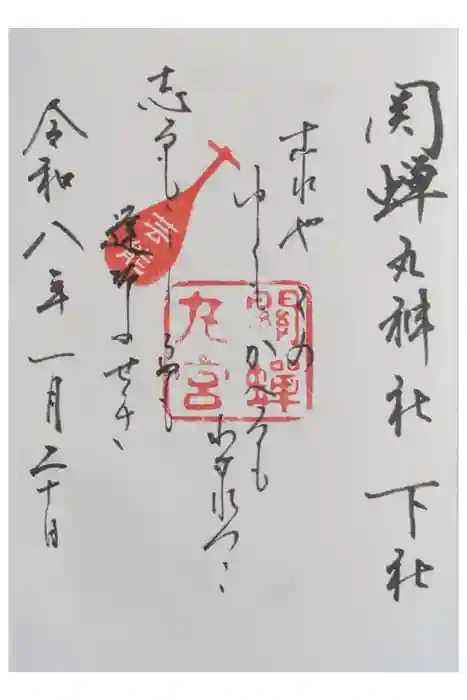 関蝉丸神社 下社
これや
この
ゆくもかへるも
わかれつゝ
志るもしらぬも
逢坂のせき
關蟬
丸宮
令和八年一月二十日